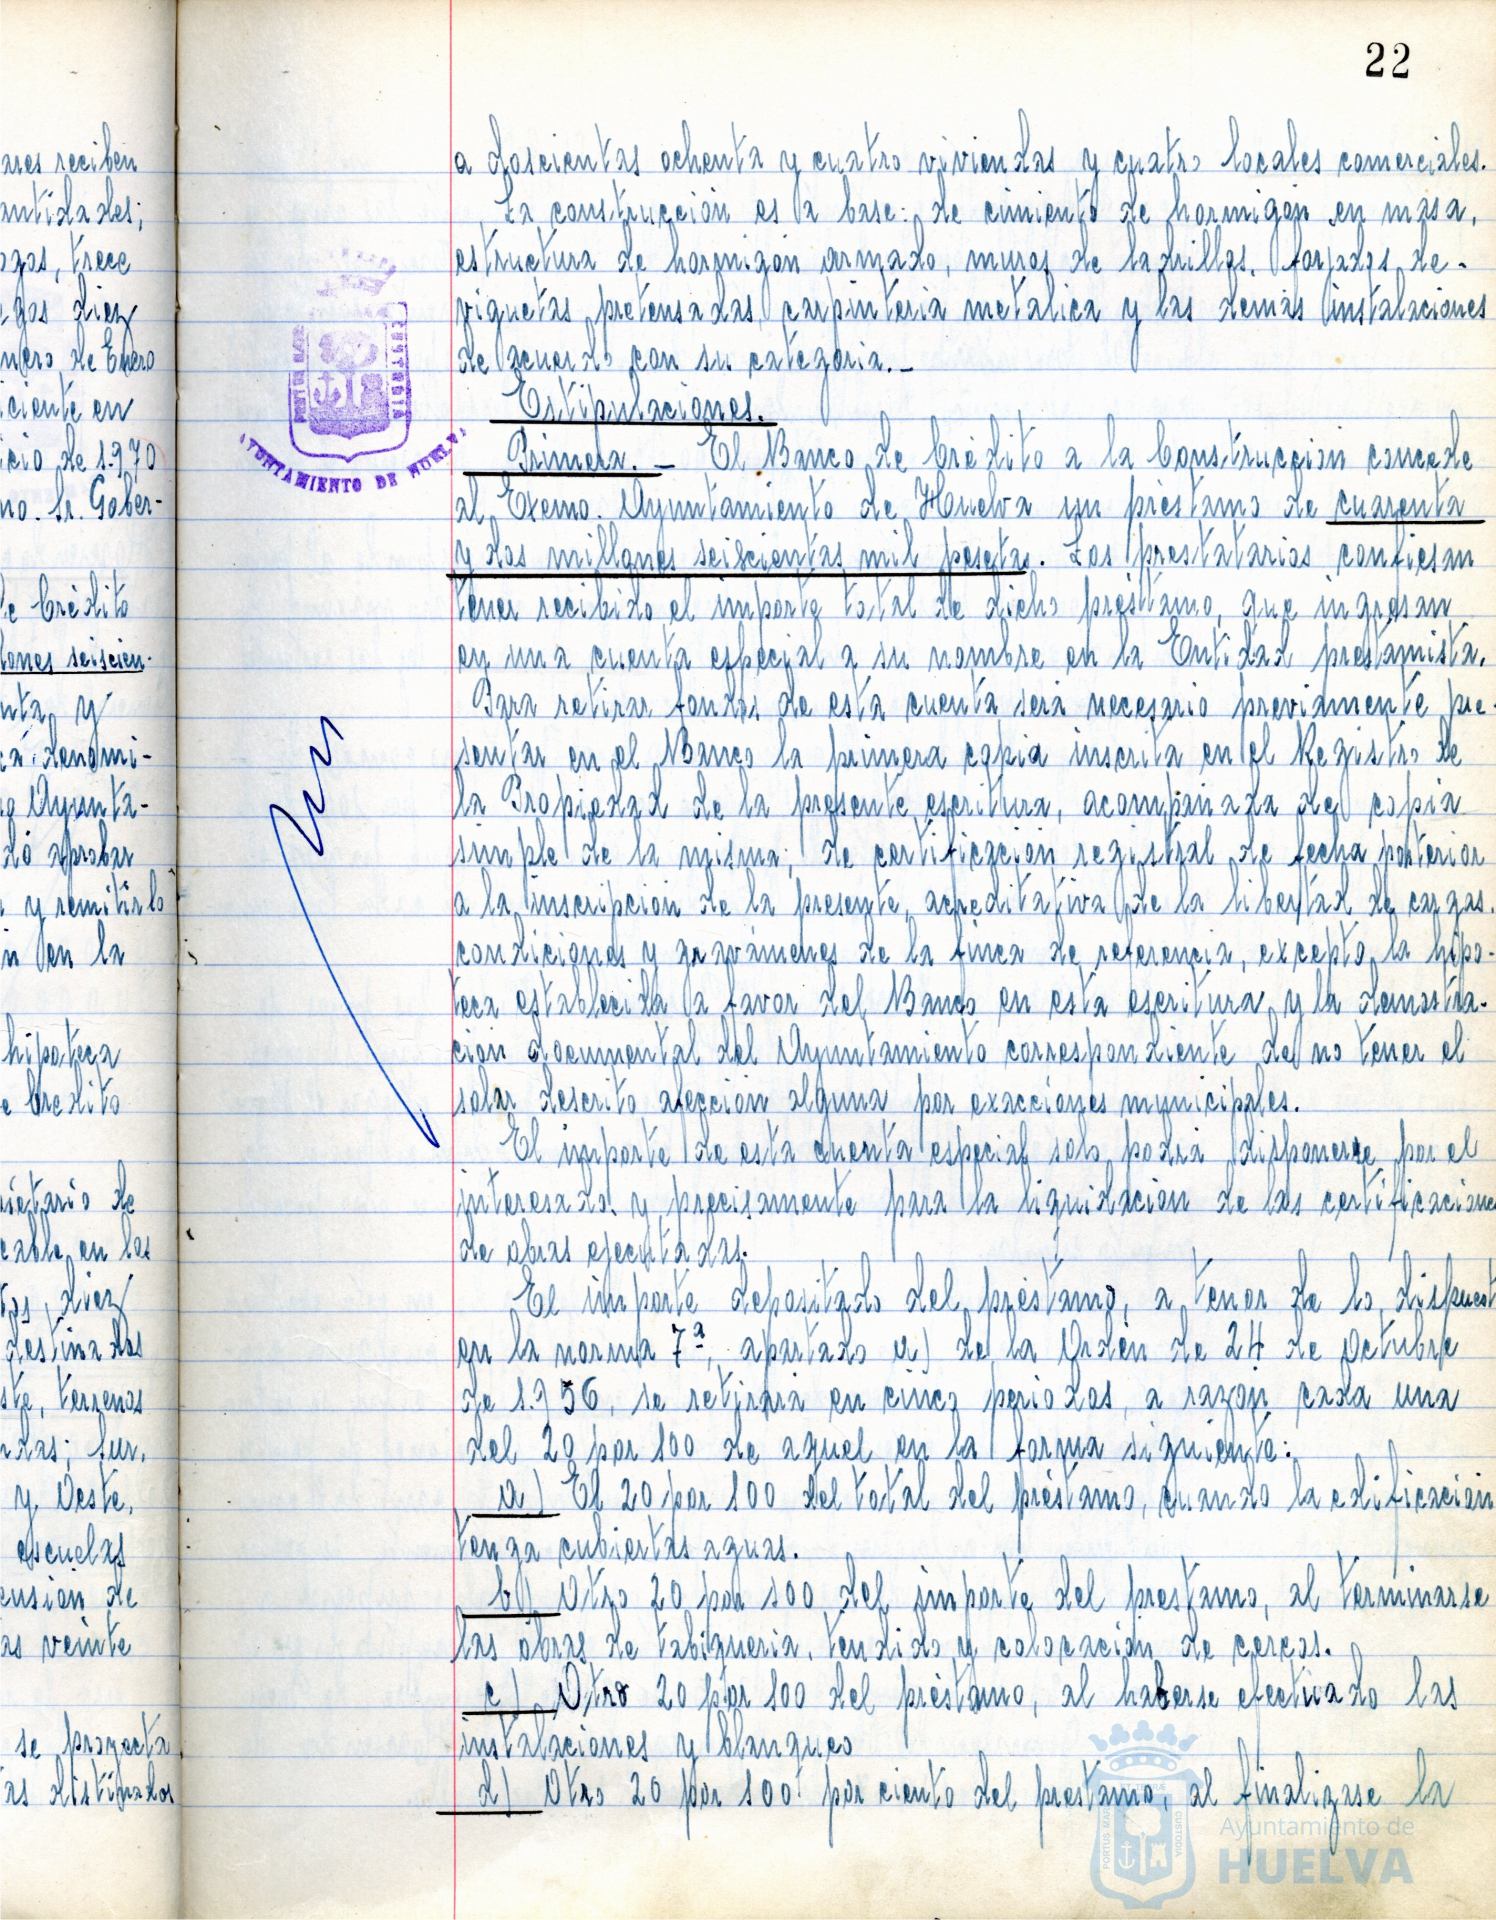 22
ares reciben
antidades;
ogos, trece
gos diez
nero de Enero
iciente en
icio de 1.970
mo. Sr. Gober-
e Crédito
lones seiscien-
nta y
ca denomi-
Ayunta-
dó aprobar
y remitirlo
n en la
hipoteca
e Crédito
ietario de
cable en los
tos, diez
destinados
ste, terrenos
das; Sur,
y Oeste,
escuelas
ensión de
as veinte
se proyecta
as distinados
a doscientas ochenta y cuatro viviendas y cuatro locales comerciales.
La construcción es a base: de cimiento de hormigón en masa,
estructura de hormigón armado, muros de ladrillos, forjados de-
viguetas pretensadas, carpinteria metálica y las demás instalaciones
de acuerdo con su categoria.-
Estipulaciones.
Primera.- El Banco de Crédito a la Construcción concede
al Excmo. Ayuntamiento de Huelva un préstamo de cuarenta
y dos millones seiscientas mil pesetas. Los prestatarios confiesan
tener recibido el importe total de dicho préstamo, que ingresan
en una cuenta especial a su nombre en la Entidad prestamista.
Para retirar fondos de esta cuenta será necesario previamente pre-
sentar en el Banco la primera copia inscrita en el Registro de
la Propiedad de la presente escritura, acompañada de copia
simple de la misma; de certificación registral de fecha posterior
a la inscripción de la presente, acreditativa de la libertad de cargas,
condiciones y gravámenes de la finca de referencia, excepto la hipo-
teca establecida a favor del Banco en esta escritura y la demostra-
ción documental del Ayuntamiento correspondiente de no tener el
solar descrito afección alguna por exacciones municipales.
El importe de esta cuenta especial solo podrá disponerse por el
interesado y precisamente para la liquidación de las certificaciones
de obras ejecutadas.
El importe depositado del préstamo, a tenor de lo dispuest
en la norma 7ª, apartado a) de la Orden de 24 de Octubre
de 1.956, se retirará en cinco periodos, a razón cada una
del 20 por 100 de aquel en la forma siguiente:
a) El 20 por 100 del total del préstamo, cuando la edificación
tenga cubiertas aguas.
b) Otro 20 por 100 del importe del prestamo, al terminarse
las obras de tabiqueria, tendido y colocación de cercos.
c) Otro 20 por 100 del préstamo, al haberse efectuado las
instalaciones y blanqueo
d) Otro 20 por 100 por ciento del prestamo, al finalizarse la
PORTUS MARIS
CUSTODIA
AYUNTAMIENTO DE HUELVA
PORTUS MARIS
ET TERRÆ
CUSTODIA
Ayuntamiento de
HUELVA